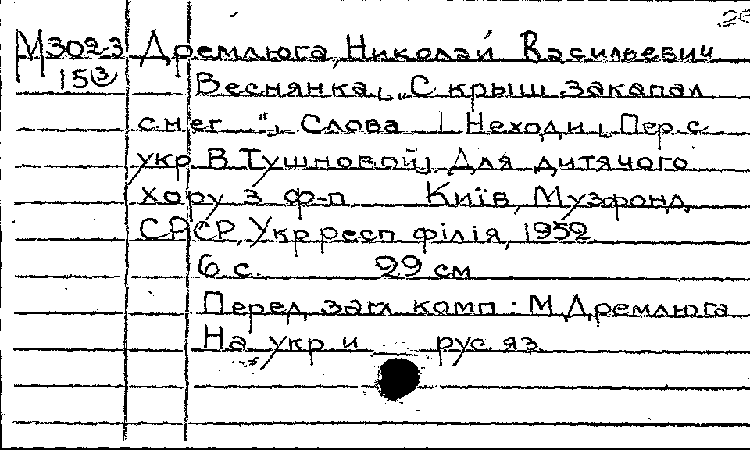 М302-3 Дремлюга, Николай Васильевич
15 Веснянка, „С крыш закапал
снег...", Слова І Неходи, Пер. с
укр. В. Тушновой, Для дитячого
хору з ф-п. Київ, Музфонд
СРСР, Укр. респ. філія, 1952
6 с. 29 см
Перед загл. комп.: М. Дремлюга
На укр. и рус. яз.